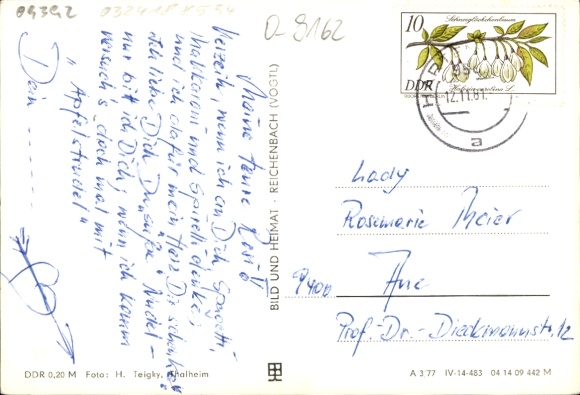 09392
D-9162
Meine teure Rosi!
Verzeih, wenn ich an Dich Spagetti,
Makkaroni und Spirelli denke,
und ich dafür mein Herz Dir schenke.
Ich liebe Dich Du süße Nudel –
nur bitt ich Dich, wenn ich komm
versuch's doch mal mit
"Apfelstrudel"
Dein
BILD UND HEIMAT · REICHENBACH (VOGTL)
10
Schneeglöckchenbaum
DDR
Halesia carolina L.
12.11.81
a
Lady
Rosemarie Meier
9400 Aue
Prof.-Dr.-Dieckmannstr. 12
DDR 0,20 M Foto: H. Teigky, Thalheim
A 3 77 IV-14-483 04 14 09 442 M